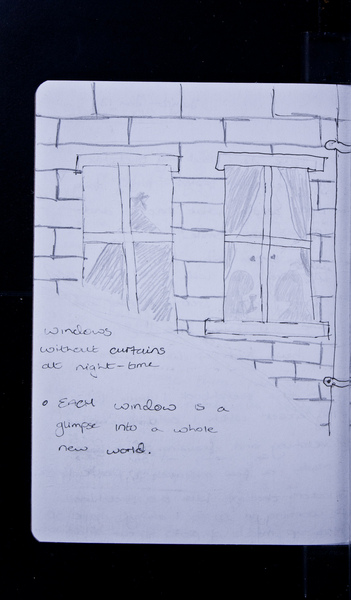 windows
without curtains
at night-time
• Each window is a
glimpse into a whole
new world.